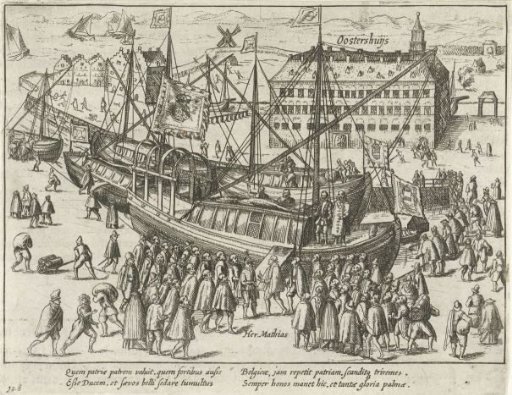 Oostershuijs
Her. Mathias
Quem patriæ patrem voluit, quem fortibus ausis
Esse Ducem, et sævos belli sedare tumultus
Belgicæ, jam repetit patriam, scanditq triremes.
Semper honos manet hic, et tantæ gloria palmæ.